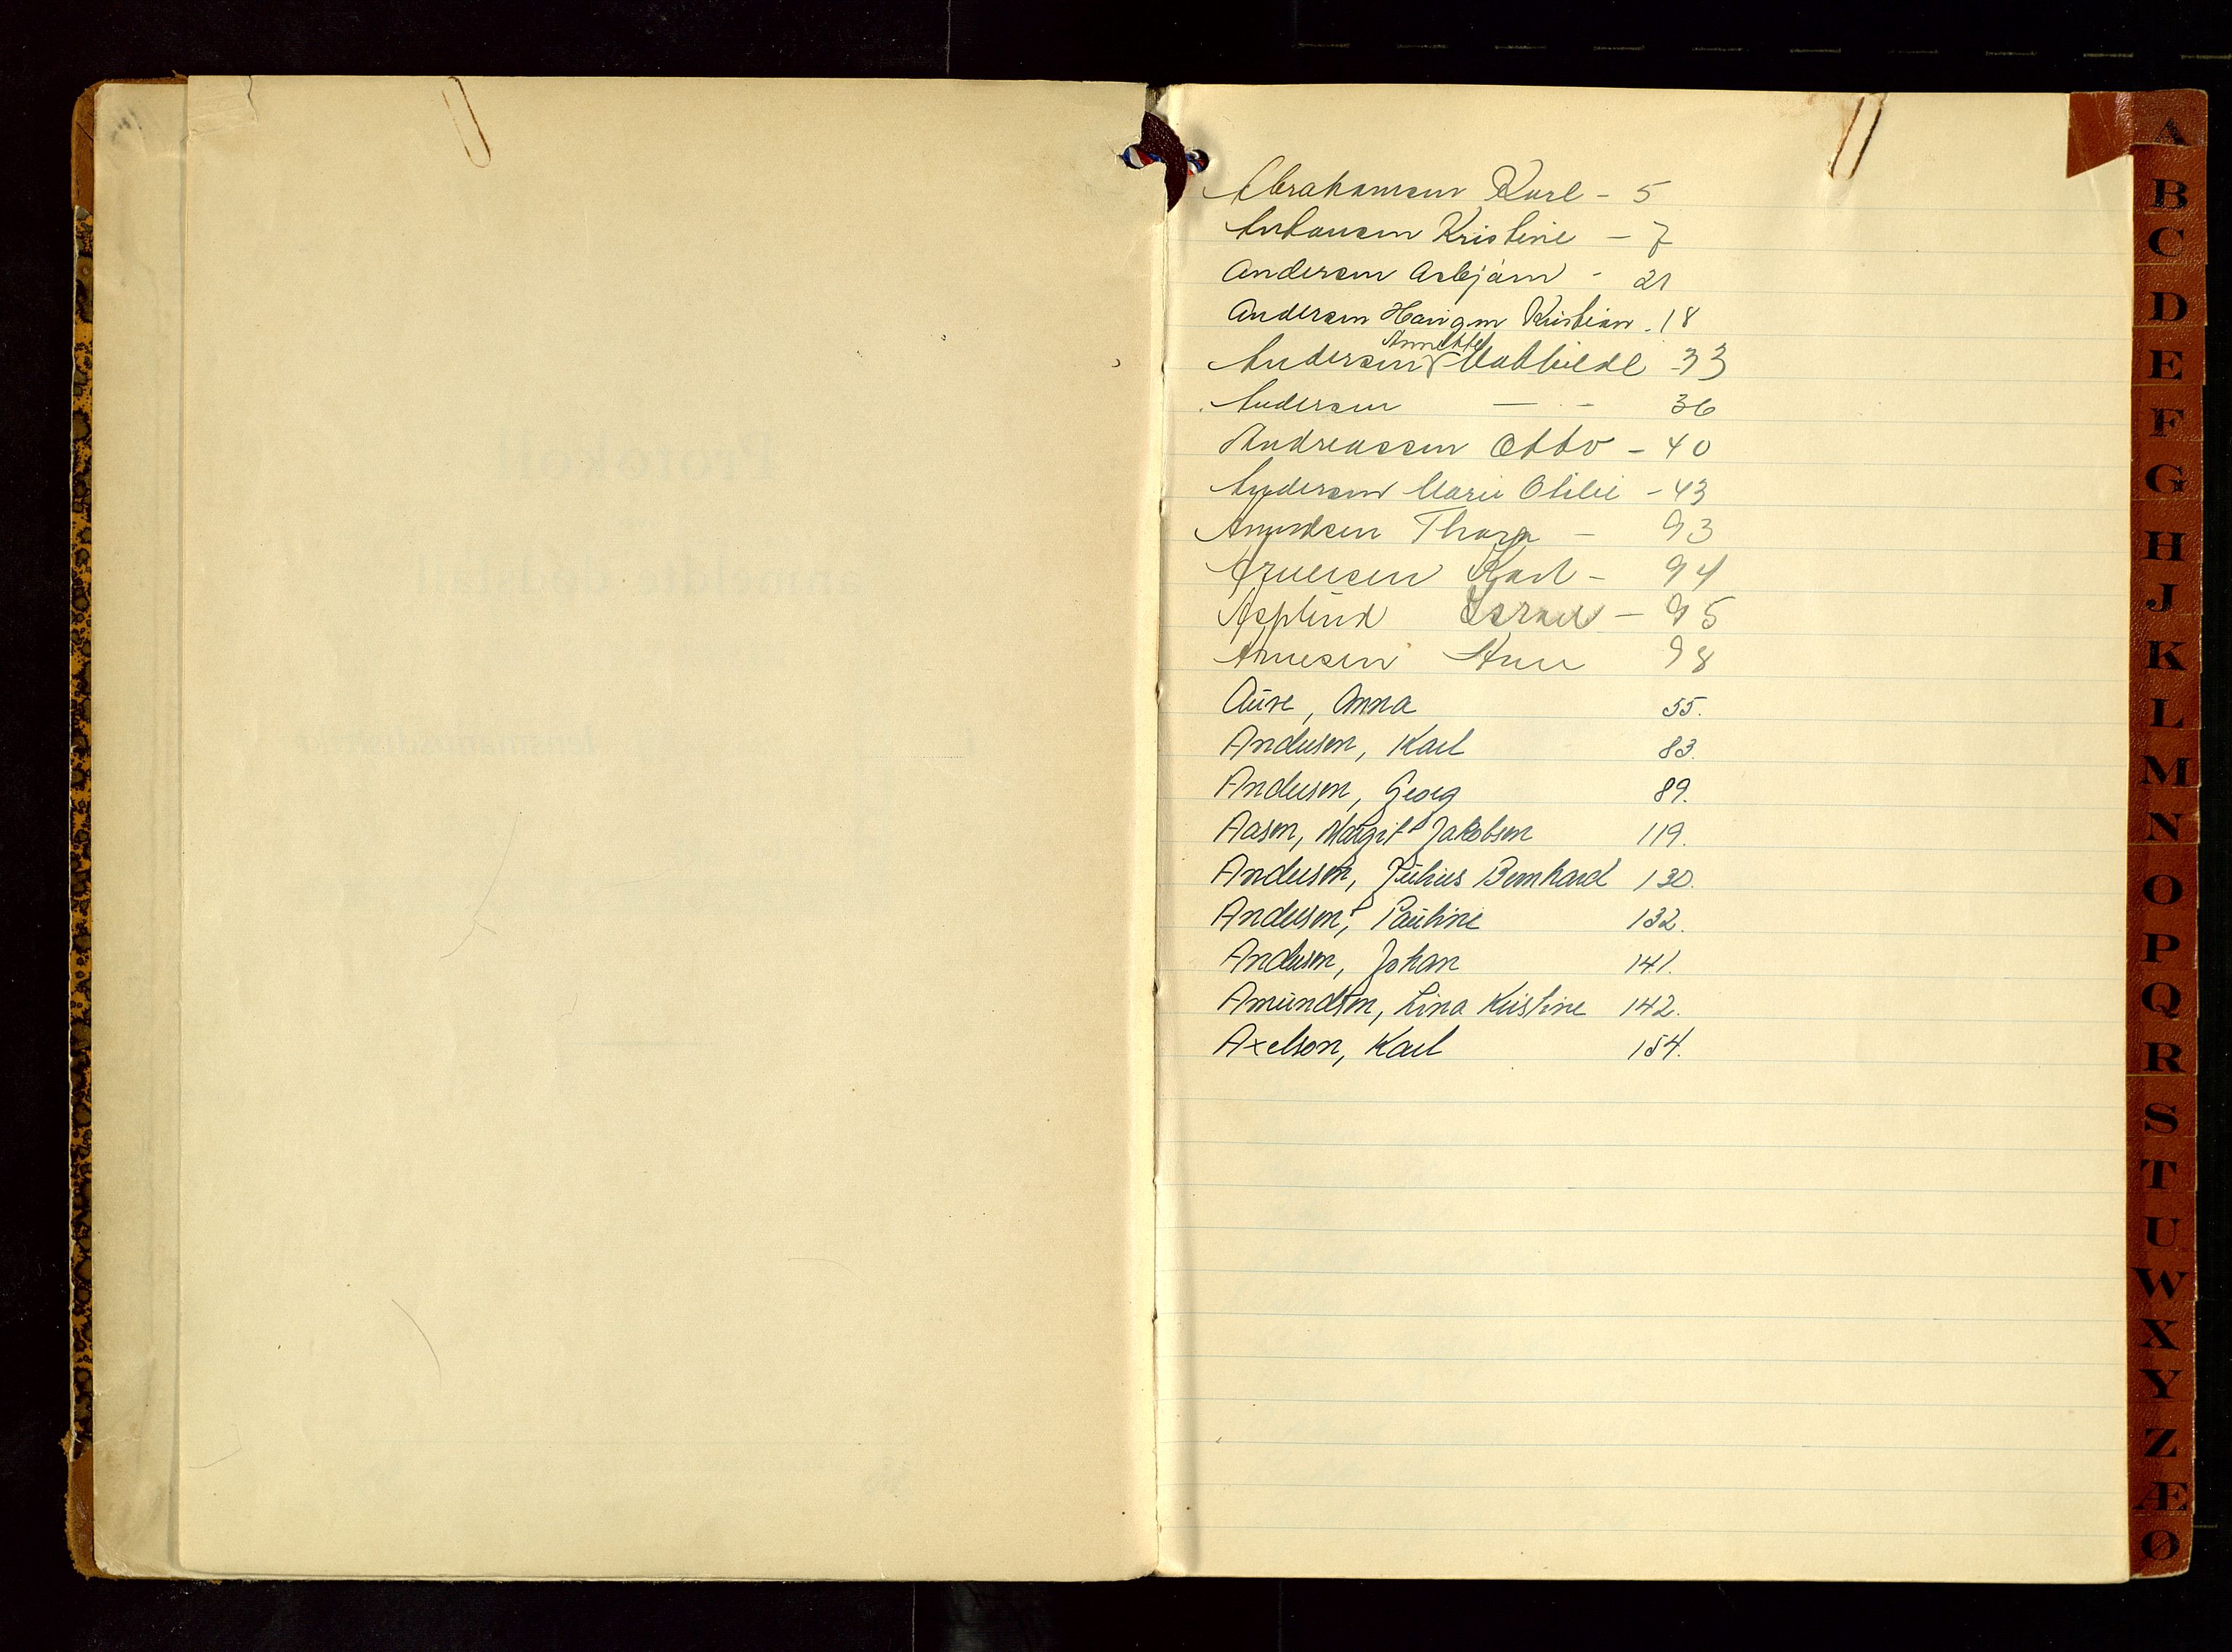 Abrahamsen Karl - 5
Antonsen Kristine - 7
Andersen Asbjørn - 21
Andersen Kristian - 18
Annette
Andersen Mathilde - 33
Andersen — - 36
Andreassen Otto - 40
Andersen Marie Otilie - 43
Amundsen Thora - 93
Arnesen Karl - 94
Asplund Israel - 95
Arnesen 98
Aure, Anna 55.
Andersen, Karl 83.
Andersen, Georg 89.
Aasen, Margit Jakobsen 119.
Andersen, Julius Bernhard 130.
Andersen, Pauline 132.
Andersen, Johan 141.
Amundsen, Lina Kristine 142.
Axelson, Karl 154.
A
B
C
D
E
F
G
H
J
K
L
M
N
O
P
Q
R
S
T
U
W
X
Y
Z
Æ
Ø